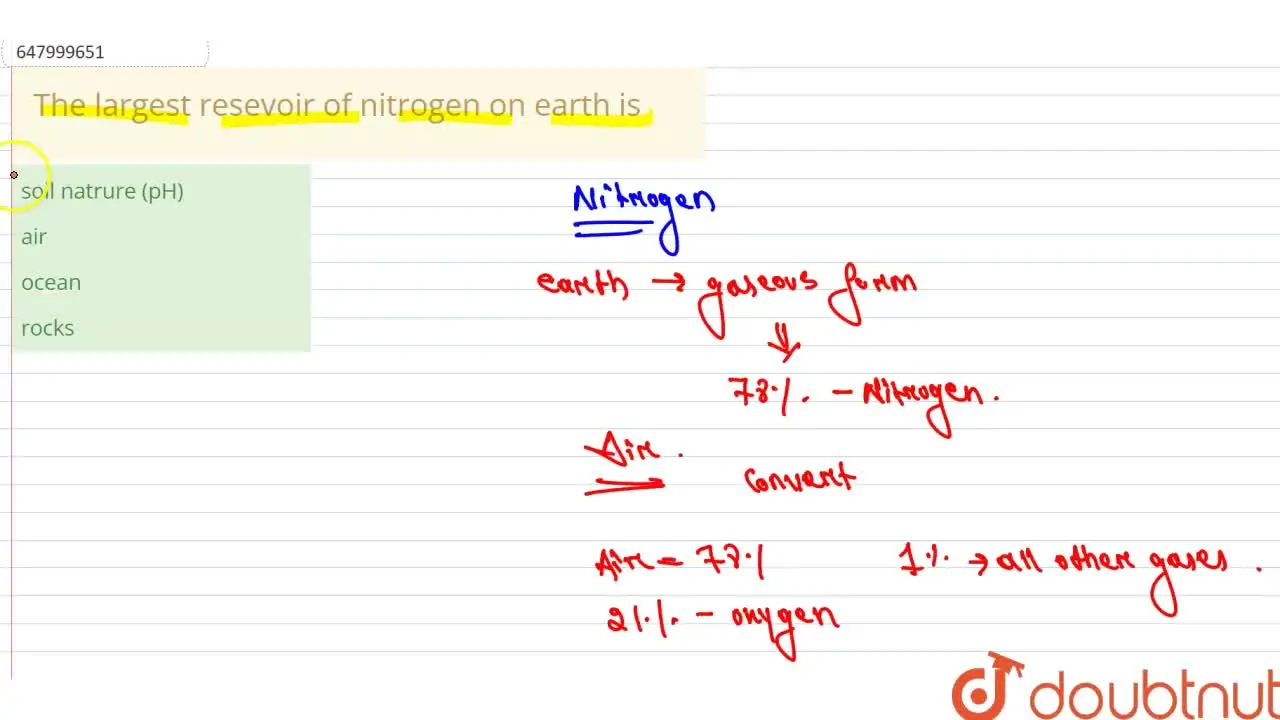 647999651
The largest resevoir of nitrogen on earth is
soil natrure (pH)
air
ocean
rocks
Nitrogen
earth → gaseous form
⇓
78% - Nitrogen.
Air.
Convert
Air = 78% 1% → all other gases.
21% - oxygen
doubtnut